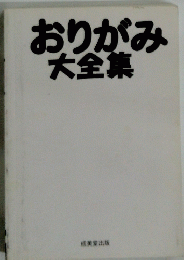 おりがみ
大全集
成美堂出版